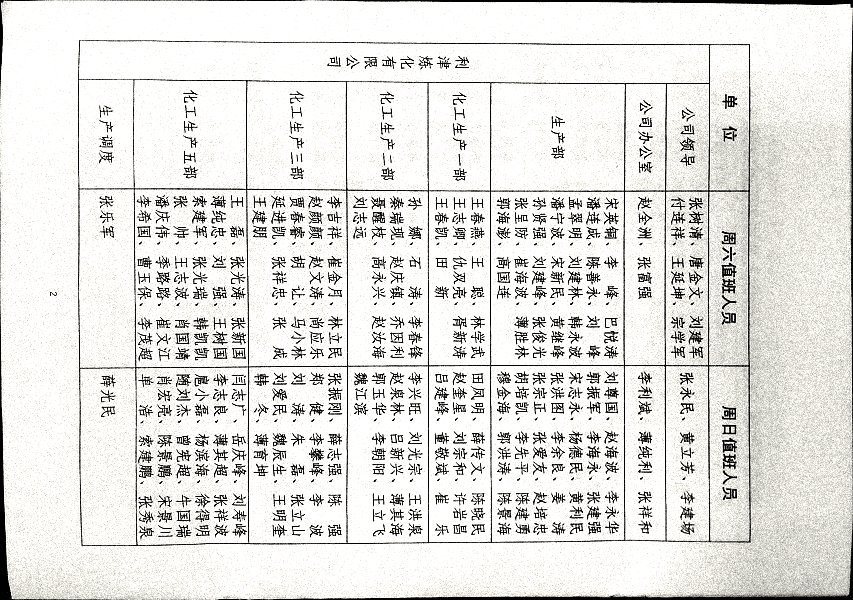 单 位
周六值班人员
周日值班人员
利津炼化有限公司
公司领导
张树清、唐金文、刘建军
付连祥、王延坤、宗学军
张永民、黄立芳、李建场
公司办公室
赵全洲、张富强
李利斌、薄纯利、张祥和
生产部
宋英铜、李 峰、巴悦涛
潘连成、陈善永、刘 峰
孟翠明、刘建林、韩永波
潘宁波、宋新民、黄继峰
孙贤强、刘建峰、张俊光
张呈防、崔海波、薄胜林
郭海澎、高国连
刘尊国、赵海波、李永华
郭振军、李海永、张建强
宋志永、杨德民、黄利民
张洪图、李余良、姜 涛
张宗正、张爱友、赵培忠
胡培凯、李先平、陈建勇
穆金海、郭洪涛、陈景海
化工生产一部
王春燕、王 聪、林学武
王志卿、仇双亮、胥新涛
王春凯、田 新
田凤明、薛传文、陈晓民
赵奎星、刘宗和、许岩昌
吕建峰、董敬斌、崔 乐
化工生产二部
孙 娜、石 涛、李春锋
秦瑞现、赵庆镇、乔因利
聂醒枝、高永兴、赵汝海
刘志远
李兴旺、刘光宗、王洪泉
赵泉林、吕新兴、薄其海
郭玉华、李朝阳、王立飞
魏江滨
化工生产三部
李吉祥、崔金月、林立民
赵颜颜、赵文涛、尚应乐
贾春睿、胡 让、马小林
延进凯、张祥忠、张 成
王建朋
张振刚、薛志强、陈 强
郑 健、李攀峰、李 波
刘 涛、朱 磊、张立山
刘爱民、魏辰生、王明奎
韩 冬、薄育坤
化工生产五部
王 磊、张光涛、张新国
薄纯忠、刘 强、王树国
索建军、张光瑞、韩凯凯
张 帅、王志波、肖国靖
潘庆伟、季路路、崔文江
李希国、曹玉保、李茂超
闫志广、岳庆峰、刘寿峰
李志良、薄其超、张祥波
扈小磊、杨滨海、徐得明
随刘杰、曾宪超、牛国瑞
肖宏亮、陈景鹏、宋景川
单 浩、索建鹏、张秀泉
生产调度
张乐军
薛光民
2